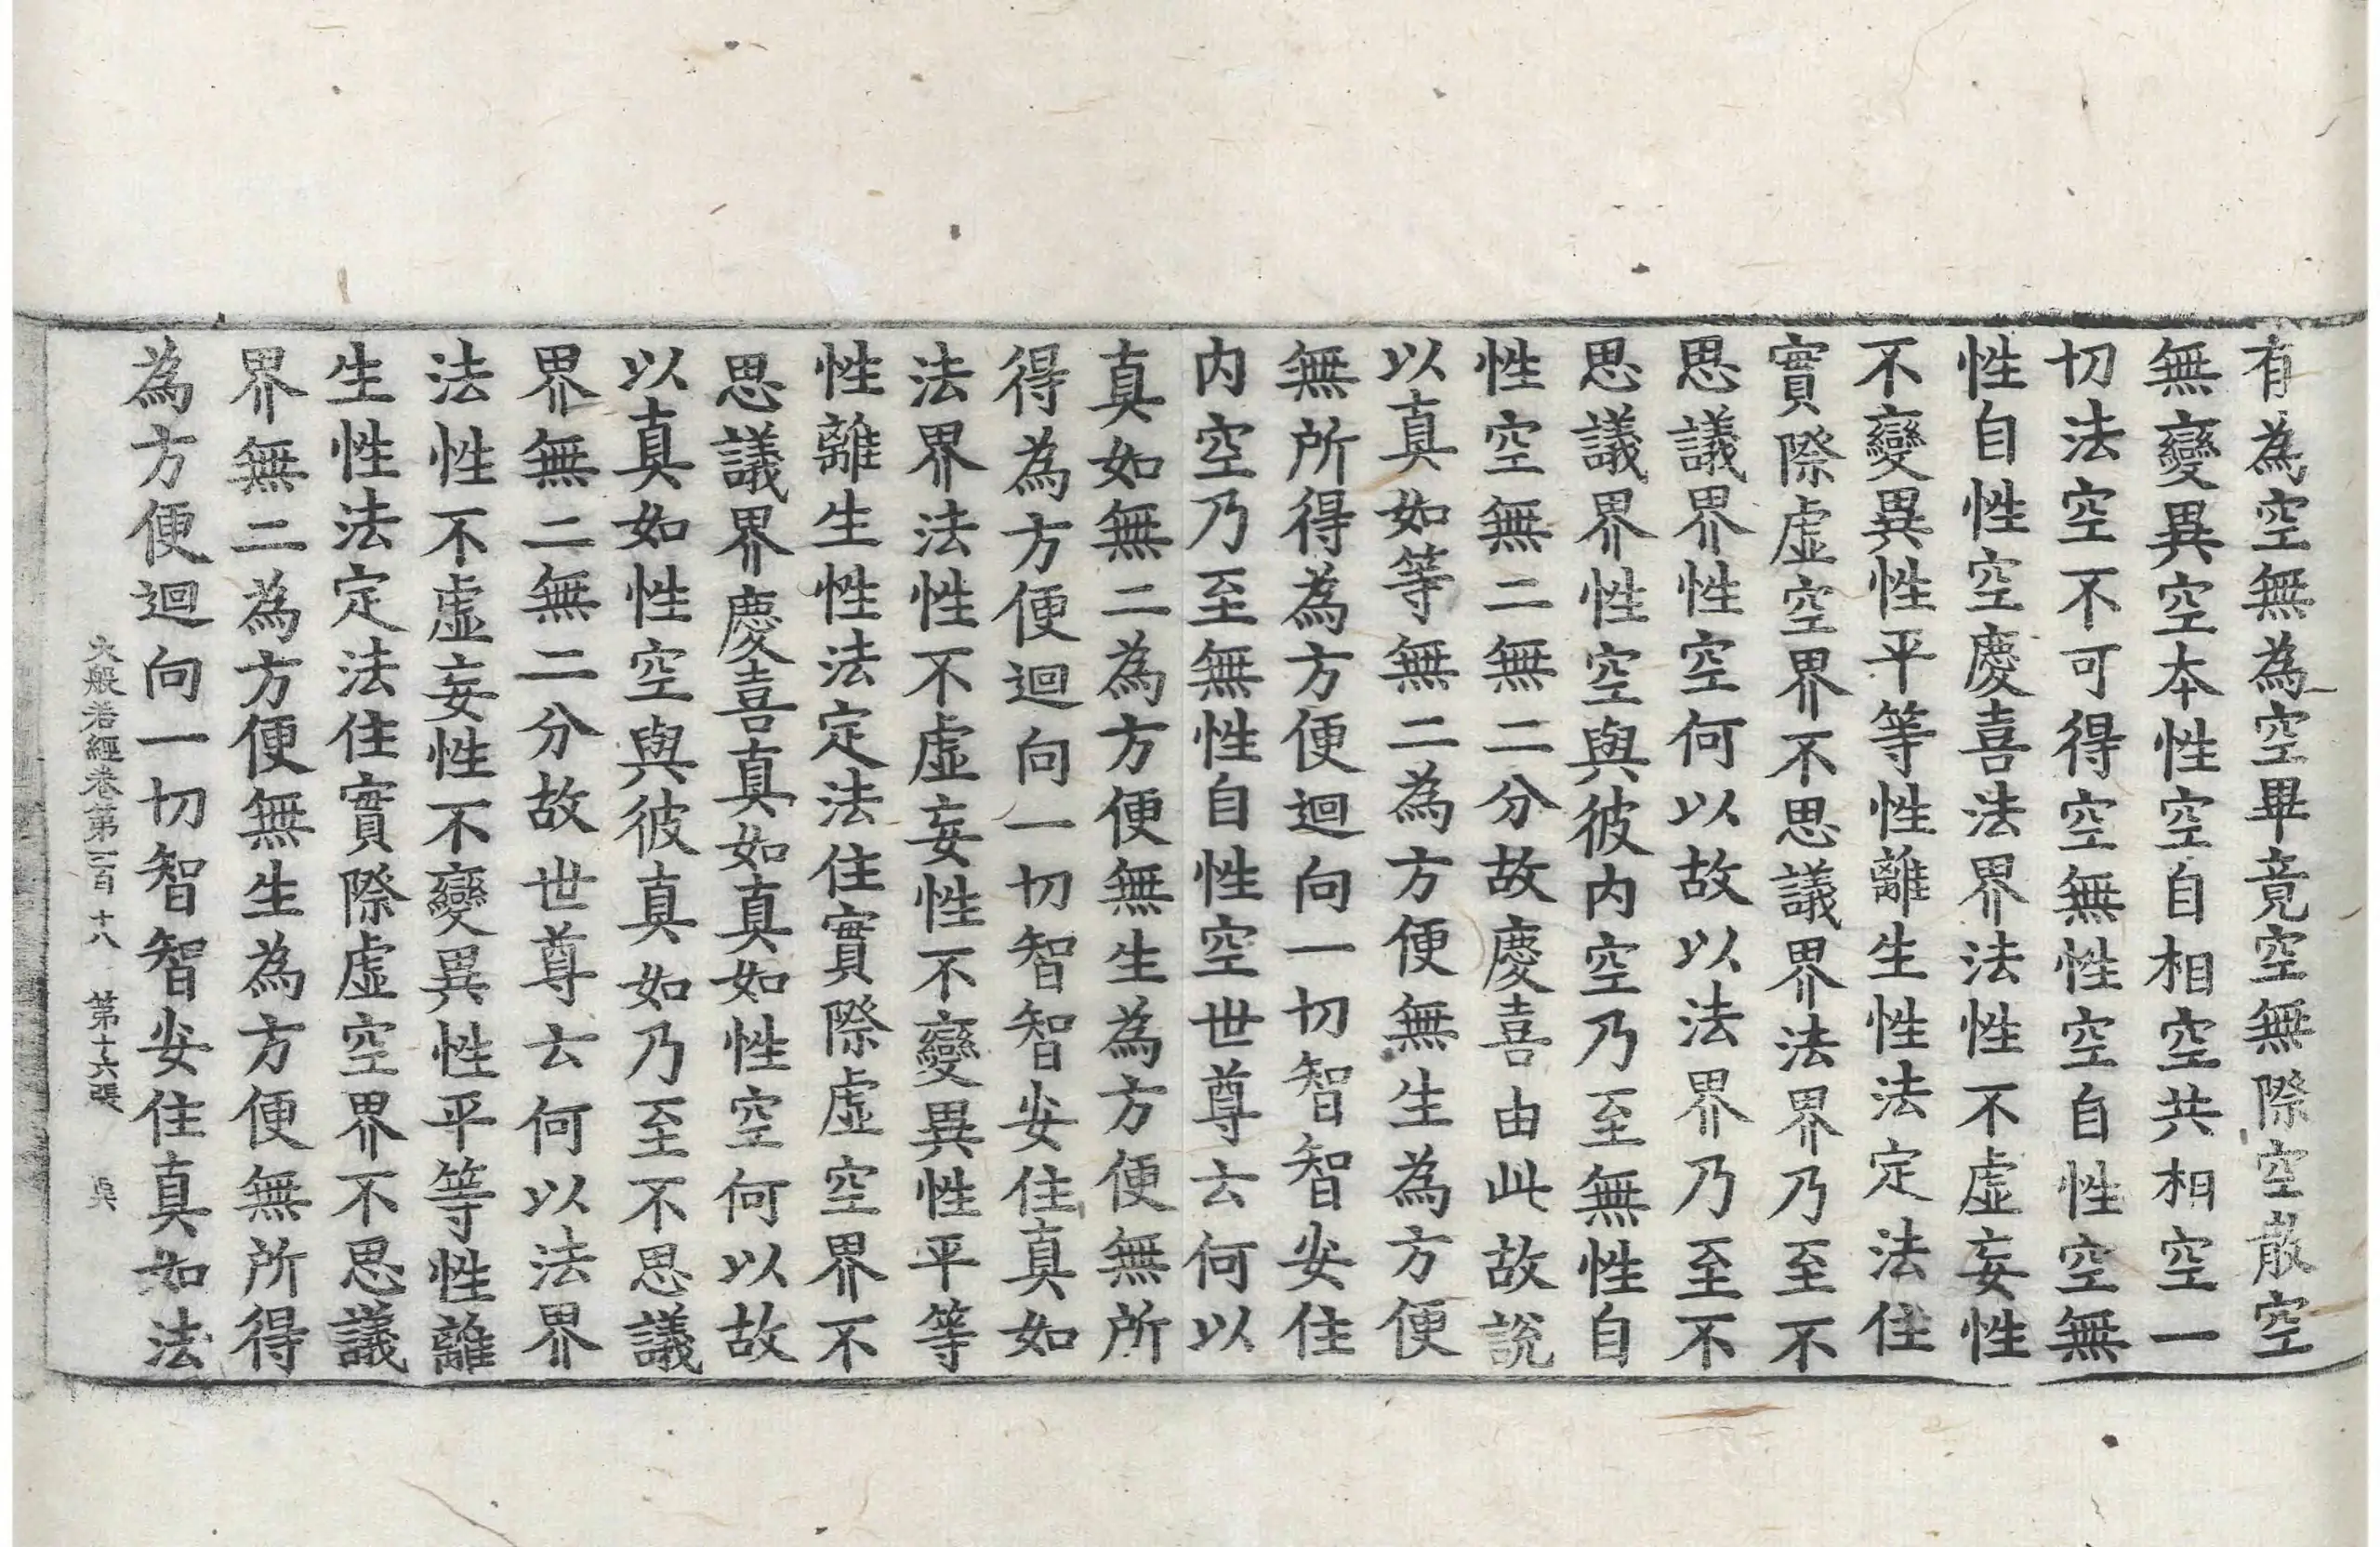 有為空無為空畢竟空無際空散空
無變異空本性空自相空共相空一
切法空不可得空無性空自性空無
性自性空慶喜法界法性不虛妄性
不變異性平等性離生性法定法住
實際虛空界不思議界法界乃至不
思議界性空何以故以法界乃至不
思議界性空與彼内空乃至無性自
性空無二無二分故慶喜由此故說
以真如等無二為方便無生為方便
無所得為方便迴向一切智智安住
内空乃至無性自性空世尊云何以
真如無二為方便無生為方便無所
得為方便迴向一切智智安住真如
法界法性不虛妄性不變異性平等
性離生性法定法住實際虛空界不
思議界慶喜真如真如性空何以故
以真如性空與彼真如乃至不思議
界無二無二分故世尊云何以法界
法性不虛妄性不變異性平等性離
生性法定法住實際虛空界不思議
界無二為方便無生為方便無所得
為方便迴向一切智智安住真如法
大般若經卷第一百十八 第十六張